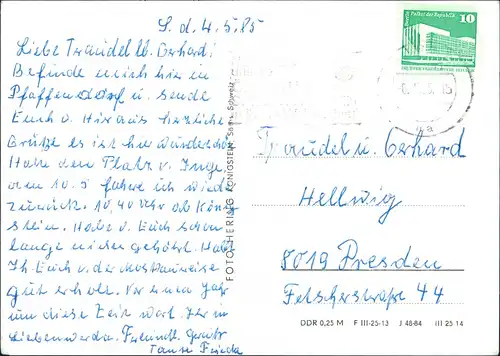 S. d. 4.5.85
Liebe Traudel u. Gerhard!
Befinde mich hier in
Pfaffendorf u. sende
Euch v. Hieraus herzliche
Grüße es ist hier wunderschön
Habe den Platz v. Inge.
am 10.5 fahre ich wieder
zurück. 10,40 Uhr ab König
stein. Habe v. Euch schon
lange nichts gehört. Habt
Ih Euch v. der
gut erholt. Vor einem Jahr
um diese Zeit wart Ihr in
Liebenwerda. Freundl. Grüße
Tante Frieda
FOTO: HERING, KÖNIGSTEIN, Sächs. Schweiz
Palast der Republik 10
Traudel u. Gerhard
Hellwig
8019 Dresden
Fetscherstraße 44
DDR 0,25 M F III-25-13 J 48-84 III 25 14